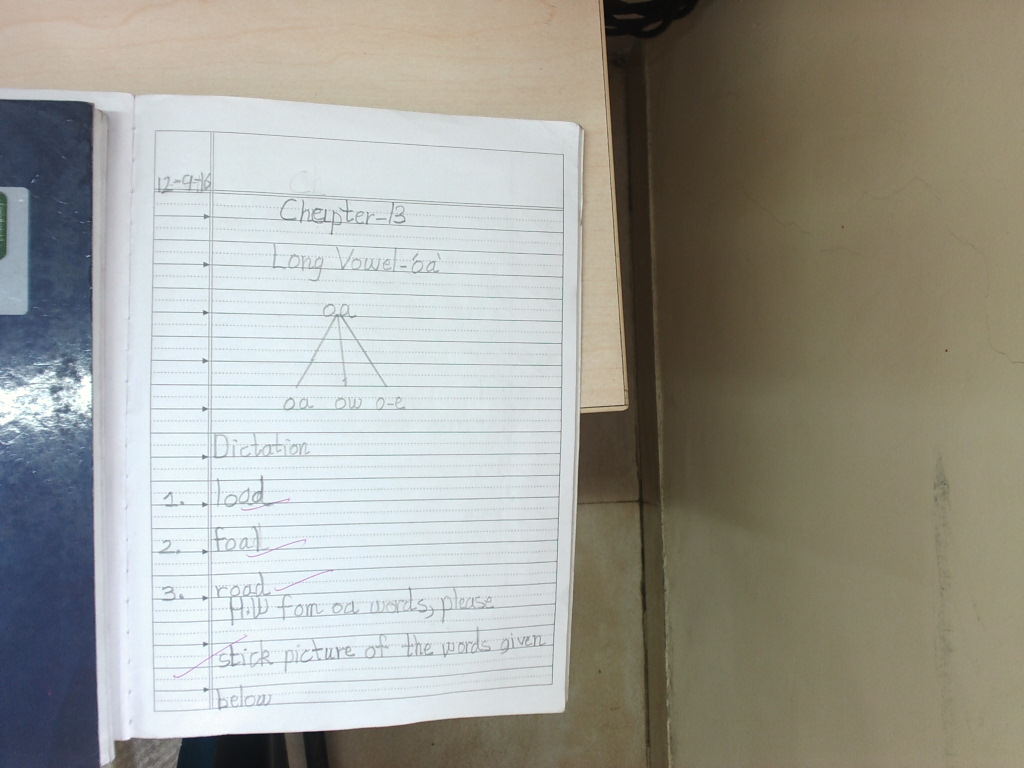 12-9-16
Chapter-13
Long Vowel-'oa'
oa
oa ow o-e
Dictation
1. load
2. foal
3. road
H.W fom oa words, please
stick picture of the words given
below